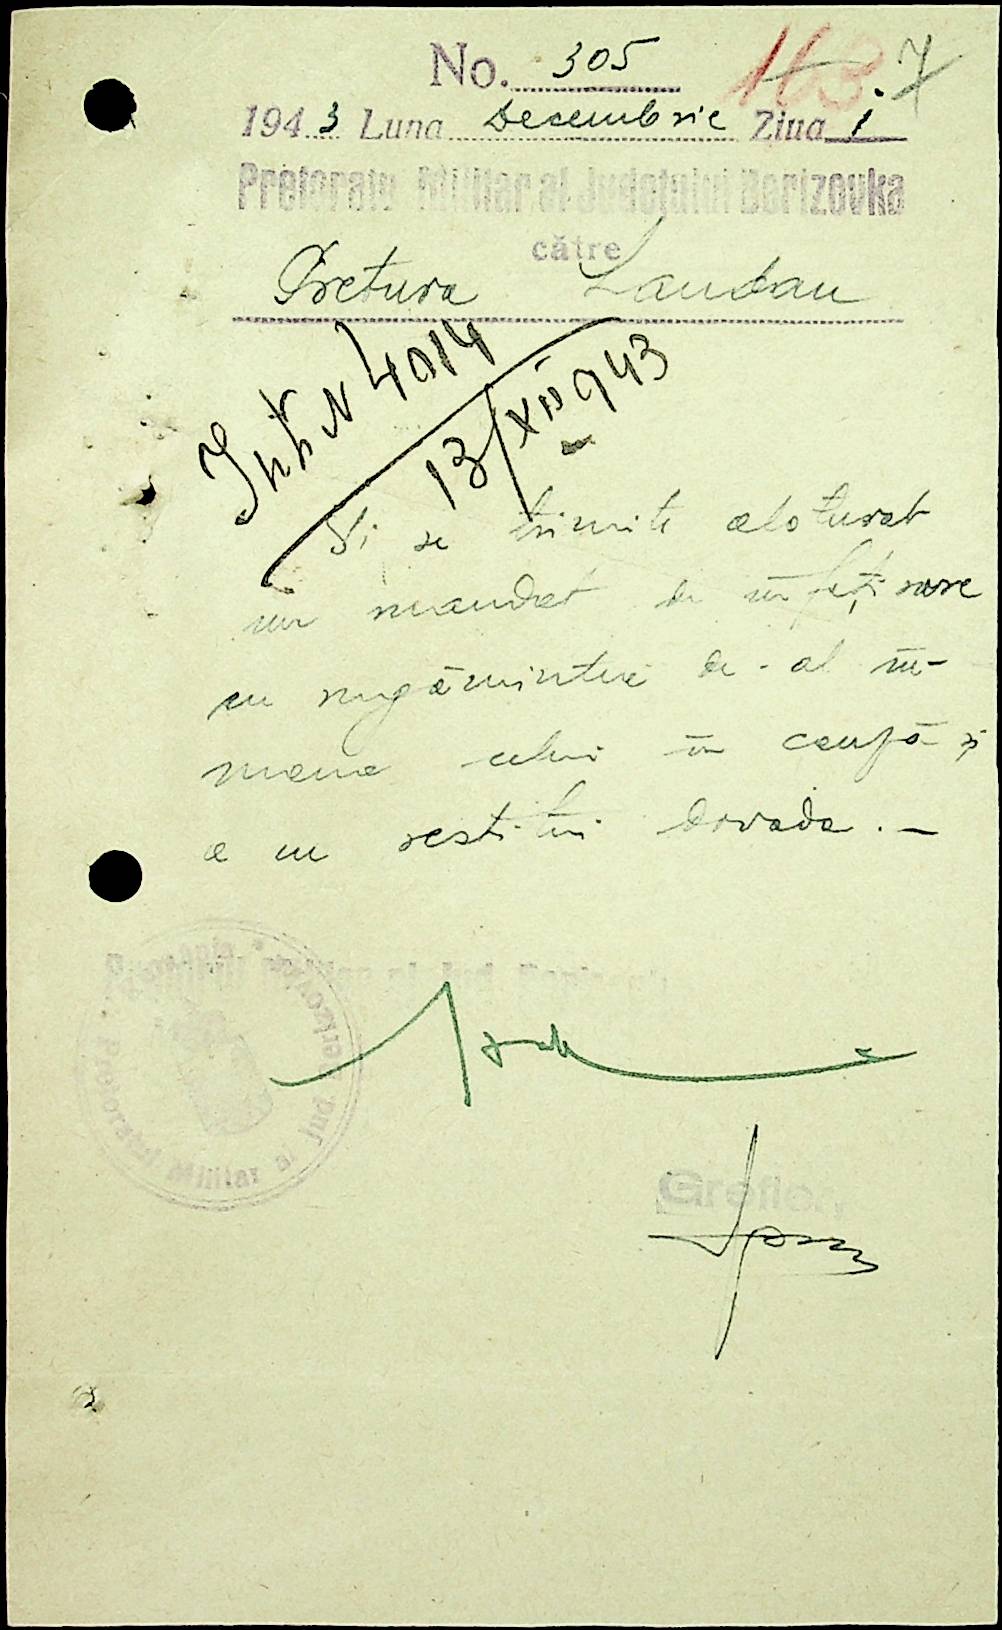 No. 305
163. 7
1943 Luna Decembrie Ziua 1
Pretoratu Militar al Județului Berizovka
către
Pretura Landau
Int. N 4014
13/XII 943
Vi se trimite alaturat
un mandat de înfățisare
cu rugămintea de-al în-
mana celui în cauză și
a ne restitui dovada.-
Pretorul Militar al Jud.
Pretoratul Militar al Jud. Berezovca
Grefier,